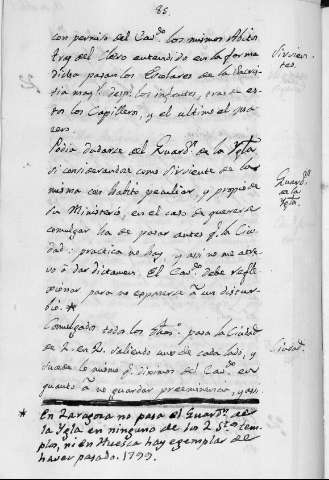 85.
con permiso del Cavdo. los mismos Abitos
tras del Clero entendido en la forma
dicha pasan los Escolares de la Sacris
tia mayr. despues los infantes, tras de es
tos los Capilleros, y el ultimo el
Sirvien-
tes.
Podia dudarse del Guardn. de la Ygla.
si considerandose como Sirviente de la
misma con habito peculiar, y propio de
su Ministerio, en el caso de quererse
comulgar ha de pasar antes q. la Ciu
dad: practica no hay, y asi no me atre
vo à dar dictamen. El Cavdo. debe refle
xionar para no exponerse à un distur
bio. *
Guardn.
de la
Ygla.
Comulgados todos los pasa la Ciudad
de 2. en 2. saliendo uno de cada lado, y
sucede lo mismo q. diximos del Cavdo. en
quanto à no guardar preeminencia, y asi
Ciudad.
* En Zaragoza no pasa el Guardn. de
la Ygla en ninguno de los 2 Stos. tem
plos, ni en Huesca hay egemplar de
haver pasado. 1799.